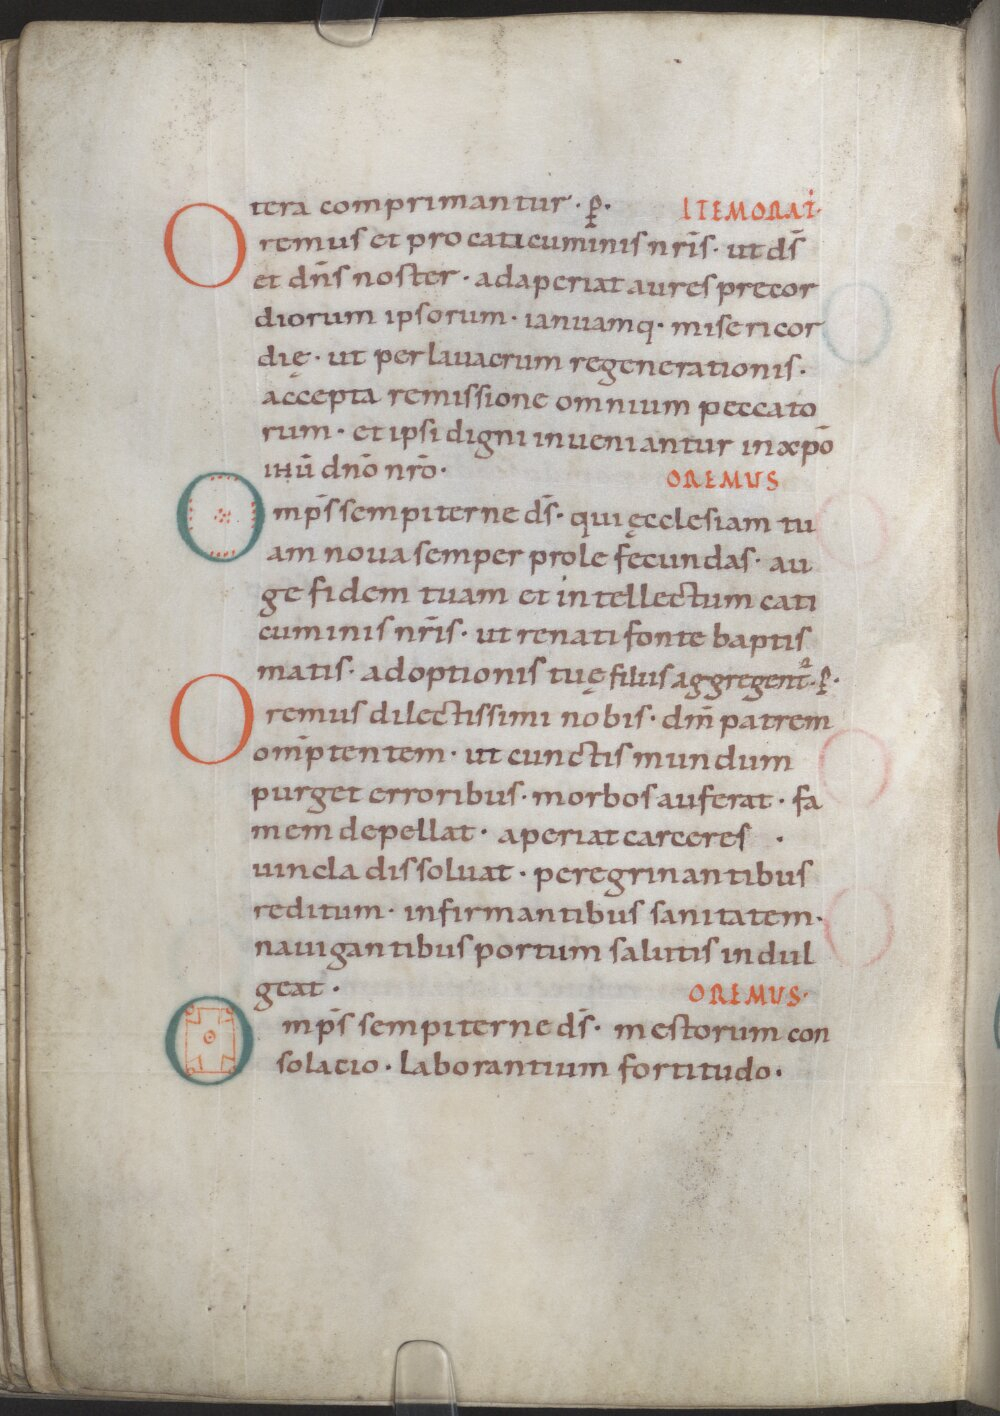 tera comprimantur · ꝑ · ITEM ORAT·
Oremus et pro caticuminis nr̄is · ut d̄s
et dn̄s noster · adaperiat aures precor
diorum ipsorum · ianuamq· misericor
dię · ut per lauacrum regenerationis ·
accepta remissione omnium peccato
rum · et ipsi digni inueniantur in xp̄o
ihū dn̄o nr̄o · OREMUS
Omp̄s sempiterne d̄s · qui ęcclesiam tu
am noua semper prole fecundas · au
ge fidem tuam et intellectum cati
cuminis nr̄is · ut renati fonte baptis
matis · adoptionis tuę filiis aggregent᷑ · ꝑ ·
Oremus dilectissimi nobis · dm̄ patrem
omp̄tentem · ut cunctis mundum
purget erroribus · morbos auferat · fa
mem depellat · aperiat carceres ·
uincla dissoluat · peregrinantibus
reditum · infirmantibus sanitatem ·
nauigantibus portum salutis indul
geat · OREMUS ·
Omp̄s sempiterne d̄s · mestorum con
solatio · laborantium fortitudo ·